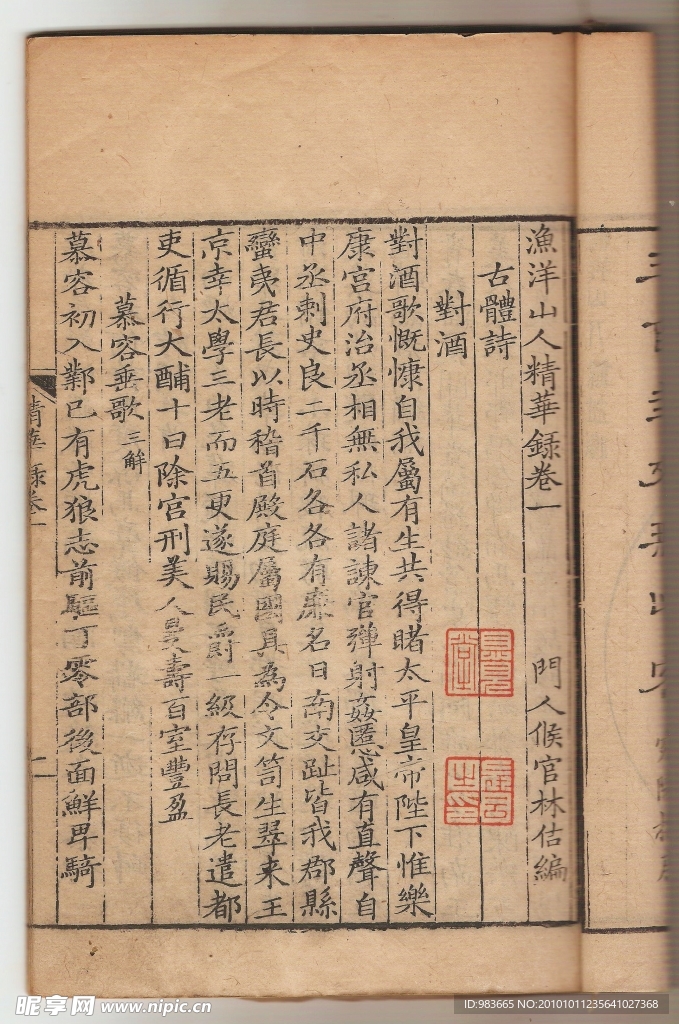 漁洋山人精華録卷一
門人候官林佶編
古體詩
對酒
對酒歌慨慷自我屬有生共得睹太平皇帝陛下惟樂
康宮府治丞相無私人諸諫官彈射姦慝咸有直聲自
中丞刺史良二千石各各有廉名日南交趾皆我郡縣
蠻夷君長以時稽首殿庭屬國具為令文笥生翠来王
京幸太學三老而五更遂賜民爵一級存問長老遣都
吏循行大酺十日除宮刑美人
壽百室豐盈
慕容垂歌三解
慕容初入鄴已有虎狼志前驅丁零部後面鮮卑騎
精華録卷一
一
昵享网 www.nipic.cn
ID:983665 NO:20101011235641027368